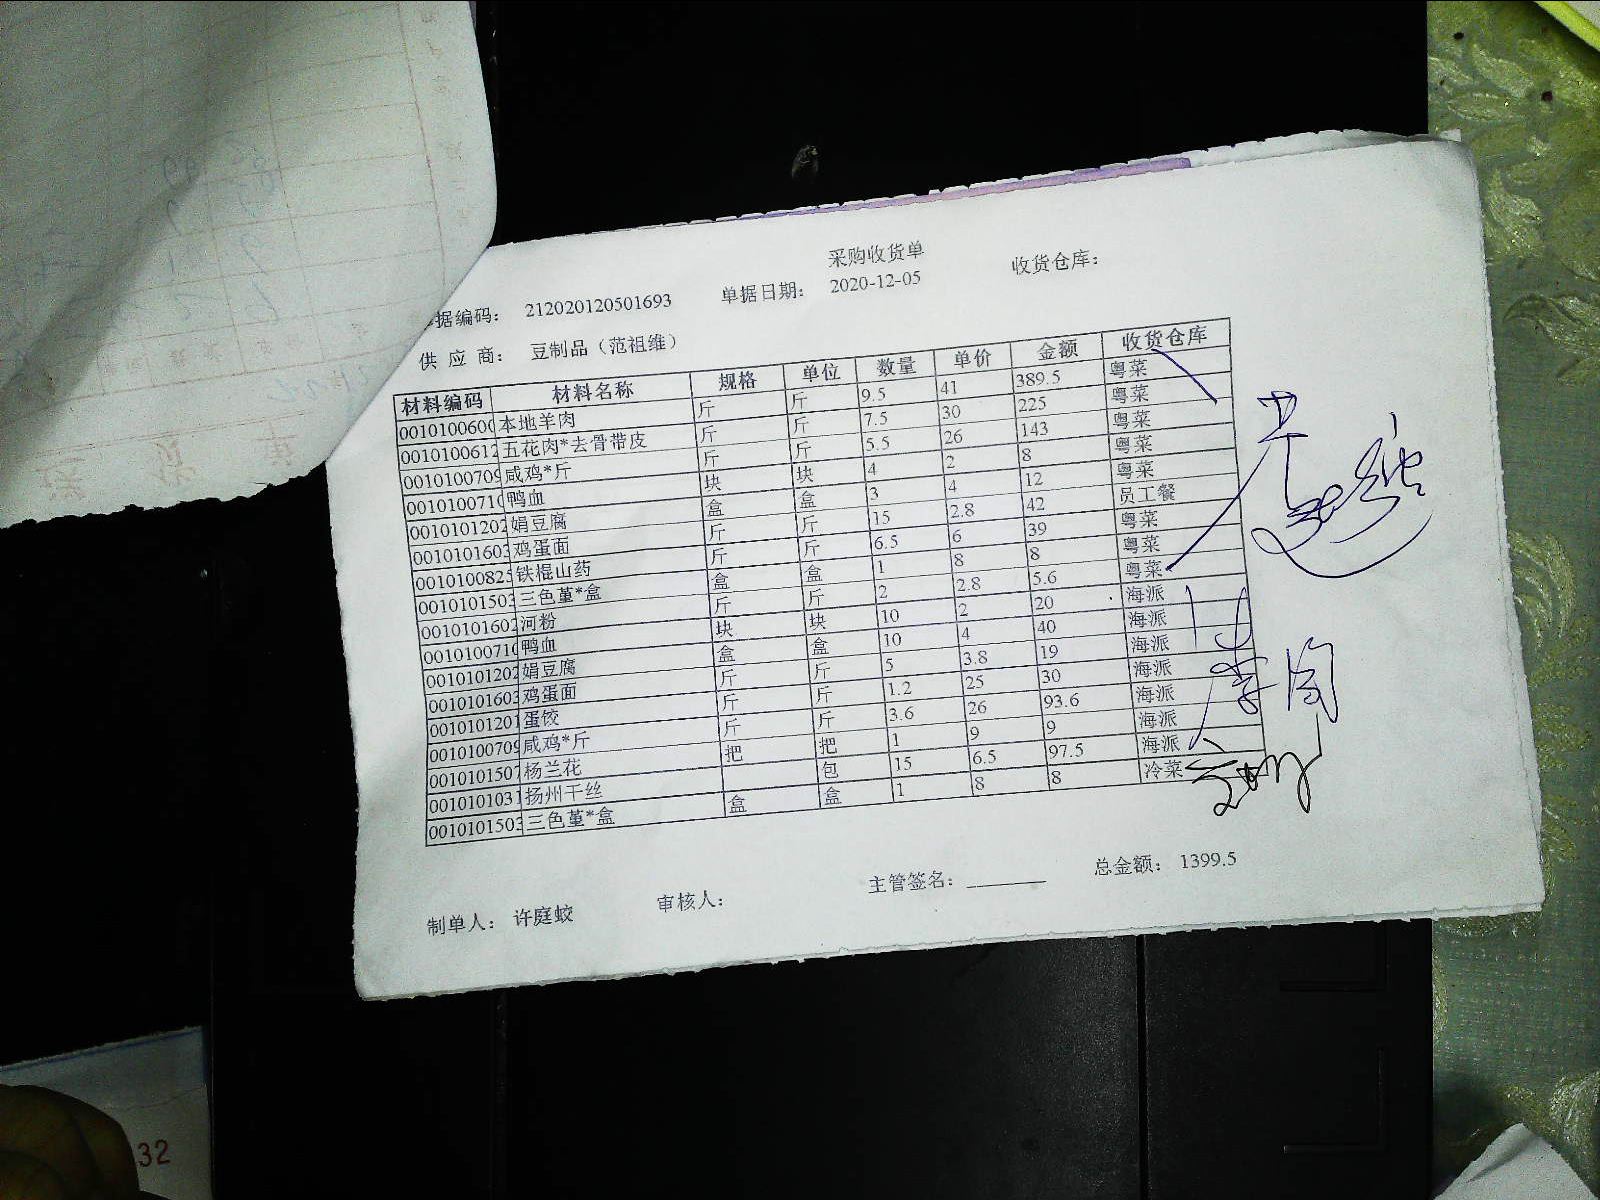 采购收货单
据编码： 212020120501693 单据日期： 2020-12-05 收货仓库：
供 应 商： 豆制品（范祖维）
材料编码 材料名称 规格 单位 数量 单价 金额 收货仓库
0010100600 本地羊肉 斤 斤 9.5 41 389.5 粤菜
0010100612 五花肉*去骨带皮 斤 斤 7.5 30 225 粤菜
0010100709 咸鸡*斤 斤 斤 5.5 26 143 粤菜
0010100710 鸭血 块 块 4 2 8 粤菜
0010101202 娟豆腐 盒 盒 3 4 12 粤菜
0010101603 鸡蛋面 斤 斤 15 2.8 42 员工餐
0010100825 铁棍山药 斤 斤 6.5 6 39 粤菜
0010101503 三色堇*盒 盒 盒 1 8 8 粤菜
0010101602 河粉 斤 斤 2 2.8 5.6 粤菜
0010100710 鸭血 块 块 10 2 20 海派
0010101202 娟豆腐 盒 盒 10 4 40 海派
0010101603 鸡蛋面 斤 斤 5 3.8 19 海派
0010101201 蛋饺 斤 斤 1.2 25 30 海派
0010100709 咸鸡*斤 斤 斤 3.6 26 93.6 海派
0010101507 杨兰花 把 把 1 9 9 海派
0010101031 扬州干丝 包 15 6.5 97.5 海派
0010101503 三色堇*盒 盒 盒 1 8 8 冷菜
制单人： 许庭蛟 审核人： 主管签名： 总金额： 1399.5
32